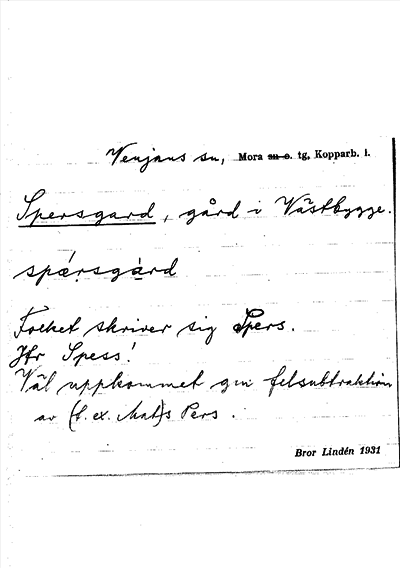 Venjans sn, Mora sn o. tg, Kopparb. l.
Spersgard, gård i Västbygge.
spærsgàrd
Folket skriver sig Spers.
Jfr Spess!
Väl uppkommet gm felsubtraktion
av (t. ex. Mat)s Pers.
Bror Lindén 1931